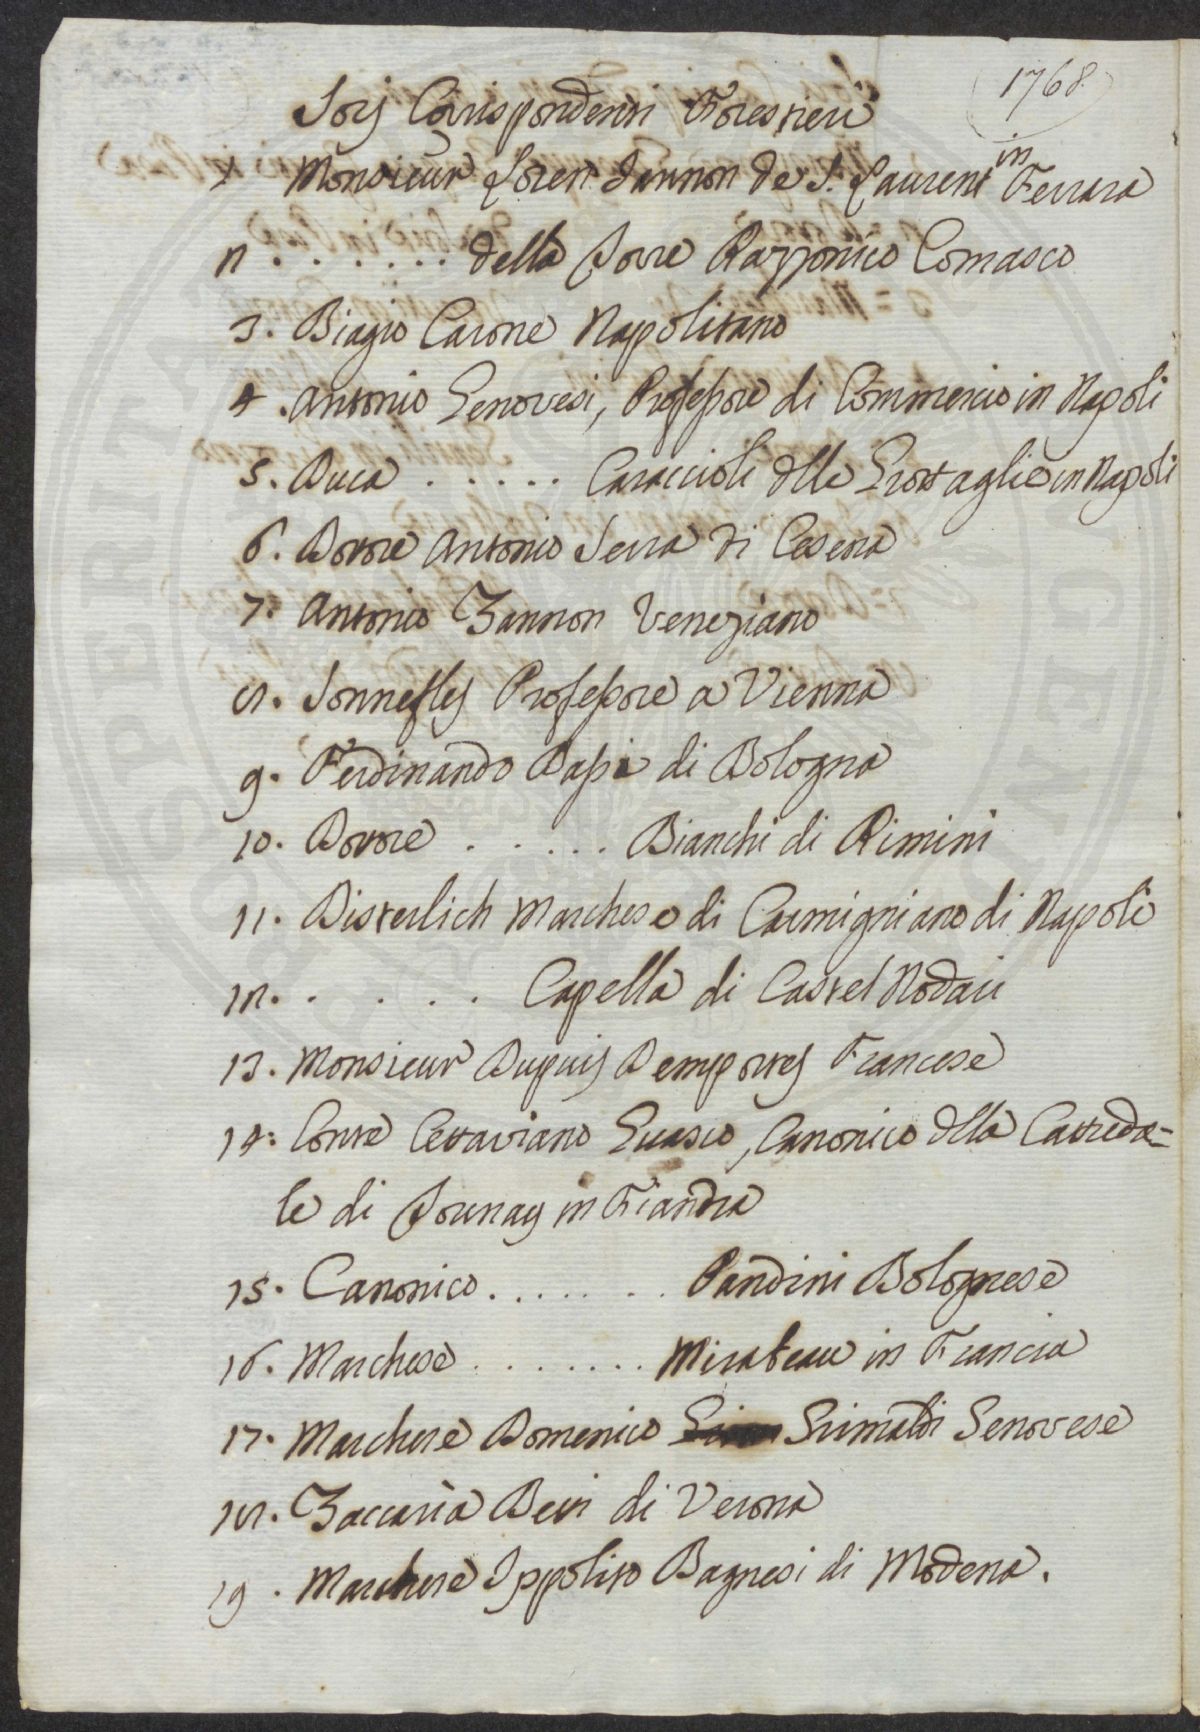 1768
Socj Corrispondenti Forestieri
1 Monsieur Loren Jannon de S. Laurent in Ferrara
2 . . . . . . . della Torre Razzonico Comasco
3. Biagio Carone Napolitano
4. Antonio Genovesi, Professore di Commercio in Napoli
5. Duca . . . . . Caraccioli dlle Grottaglie in Napoli
6. Dottore Antonio Serra di Cesena
7. Antonio Zannon Veneziano
8. Sonnesfles Professore a Vienna
9. Ferdinando Bassi di Bologna
10. Dottore . . . . . Bianchi di Rimini
11. Bisterlich Marchese di Carmigniano di Napoli
12. . . . . . Capella di Castel Nodari
13. Monsieur Dupuis Demportes Francese
14. Conte Ottaviano Guasco, Canonico dlla Cattedra=
le di Tournay in Fiandra
15. Canonico . . . . . . . Pandini Bolognese
16. Marchese . . . . . . . Mirabeau in Francia
17. Marchese Domenico Grimaldi Genovese
18. Zaccaria Betti di Verona
19. Marchese Ippolito Bagnesi di Modena.